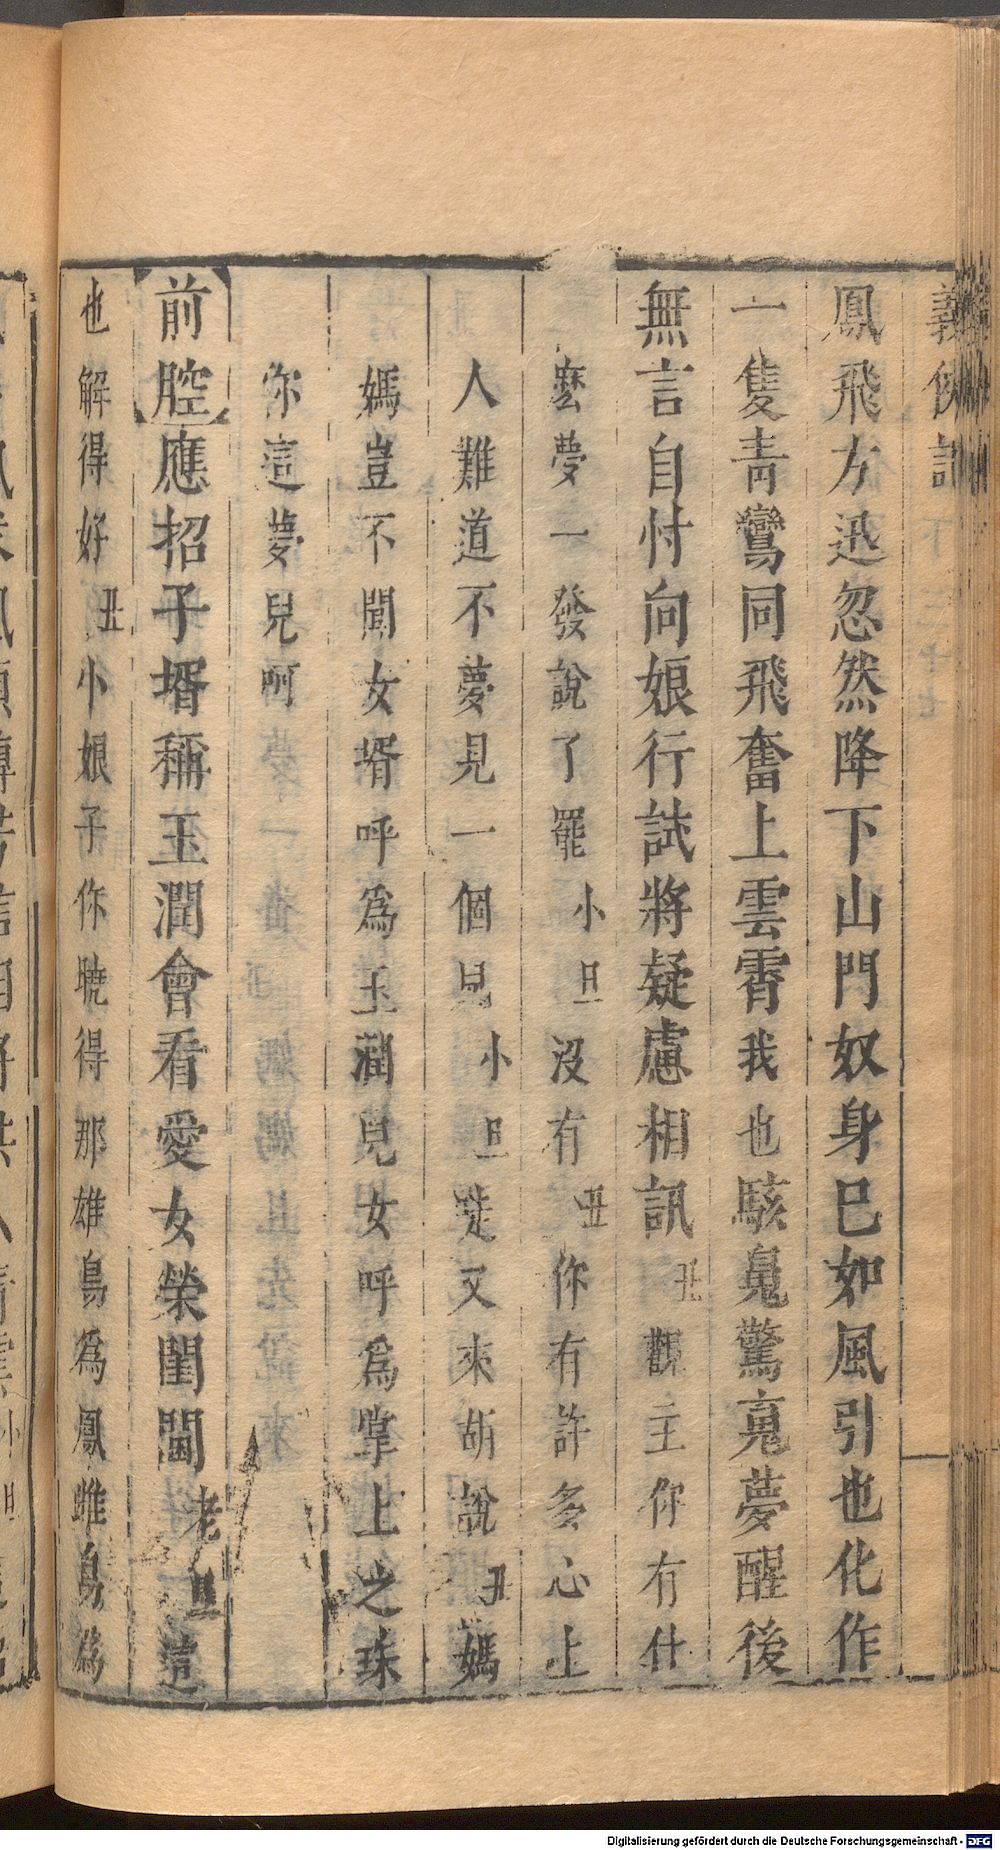 義俠記
下
二十七
鳳飛方迅忽然降下山門奴身已如風引也化作
一隻青鸞同飛奮上雲霄我也駭䰟驚䰟夢醒後
無言自忖向娘行試將疑慮相訊丑觀主你有什
麽夢一發說了罷小旦沒有丑你有許多心上
人難道不夢見一個兒小旦啐又來胡說丑媽
媽豈不聞女壻呼爲玉潤兒女呼爲掌上之珠
你這夢兒呵
前腔應招子壻稱玉潤會看愛女榮閨閫老旦這
也解得好丑小娘子你曉得那雄鳥爲鳳雌鳥爲
Digitalisierung gefördert durch die Deutsche Forschungsgemeinschaft - DFG